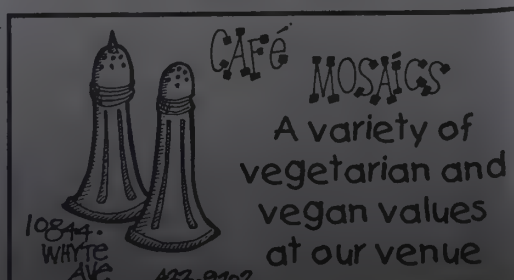 CAFé
MOSAiCS
A variety of
vegetarian and
vegan values
at our venue
10844.
WHYTE
AVE.